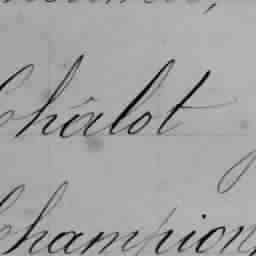 Châlot
Champion,